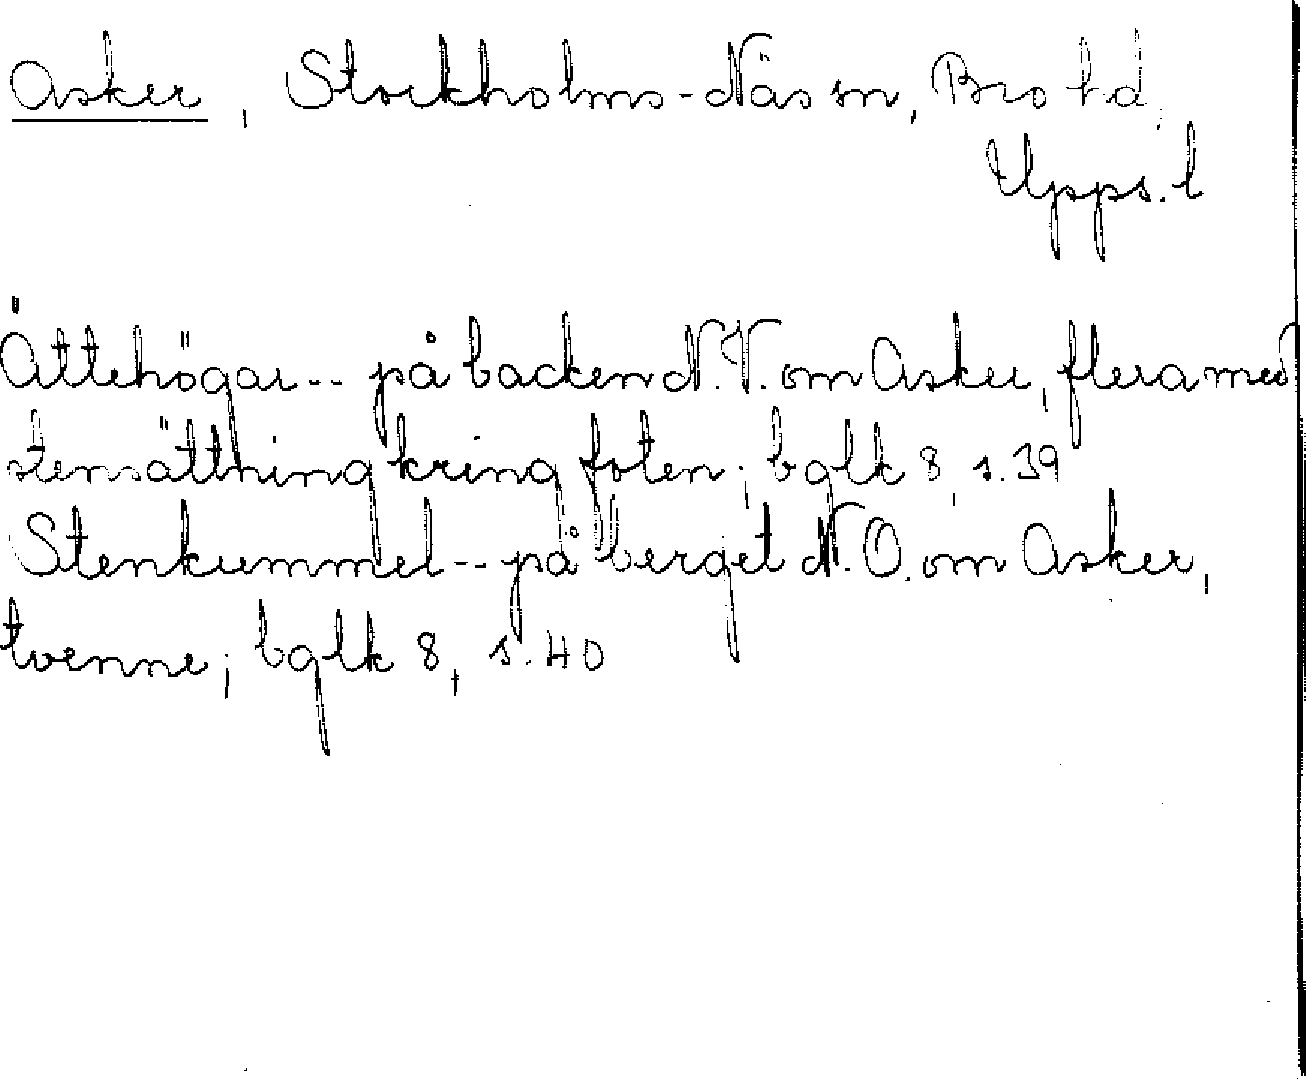 Asker, Stockholms-Näs sn, Bro hd,
Upps. l
Ättehögar -- på backen N.V. om Asker, flera med
stensättning kring foten; bglk 8, s. 39
Stenkummel -- på berget N.O. om Asker,
tvenne; bglk 8, s. 40